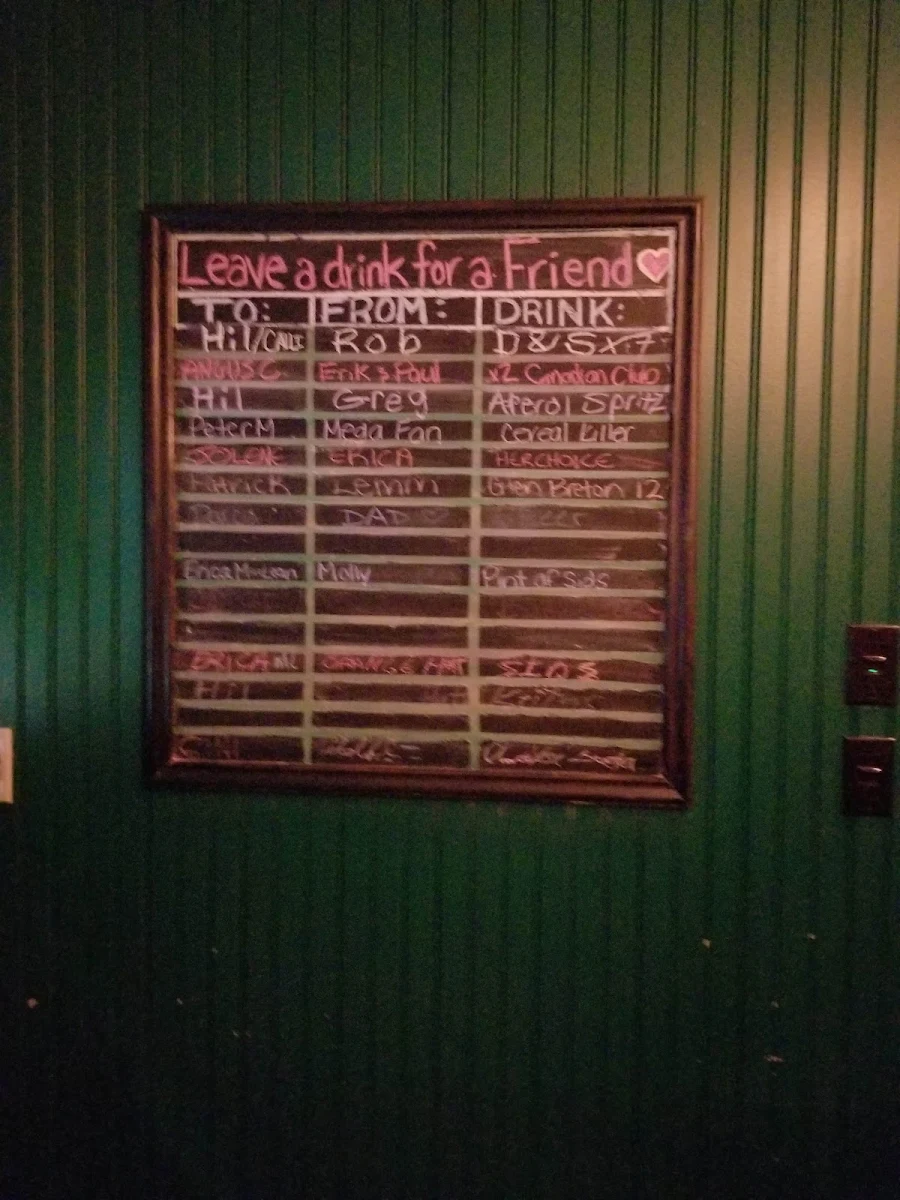 Leave a drink for a Friend
TO: FROM: DRINK:
Hil/CALI Rob D&S x 7
ANGUS C Erik & Paul x2 Canadian Club
Hil Greg Aperol Spritz
Peter M Mega Fan Cereal Killer
JOLENE ERICA HER CHOICE
Patrick Lemm Glen Breton 12
DAD
Erica McLean Molly Pint of Suds
ERICA Mc ORANGE HAT
Hil